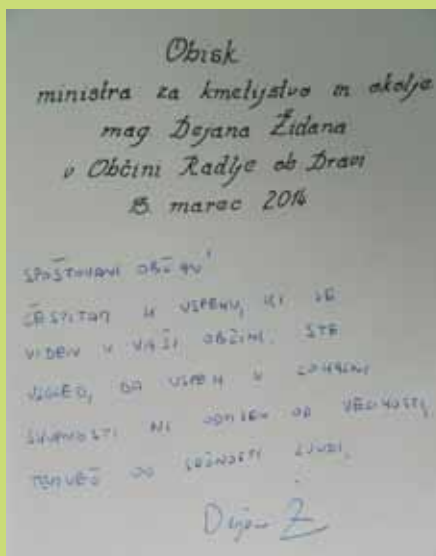 Obisk
ministra za kmetijstvo in okolje
mag Dejana Židana
v Občini Radlje ob Dravi
marec 2014
SPOŠTOVANI OBČANI!
ČESTITAM K USPEHU, KI JE
VIDEN V VAŠI OBČINI. STE
ZGLED, DA USPEH V LOKALNI
SKUPNOSTI NI ODVISEN OD VELIKOSTI,
TEMVEČ OD LJUDI.
Dejan Ž